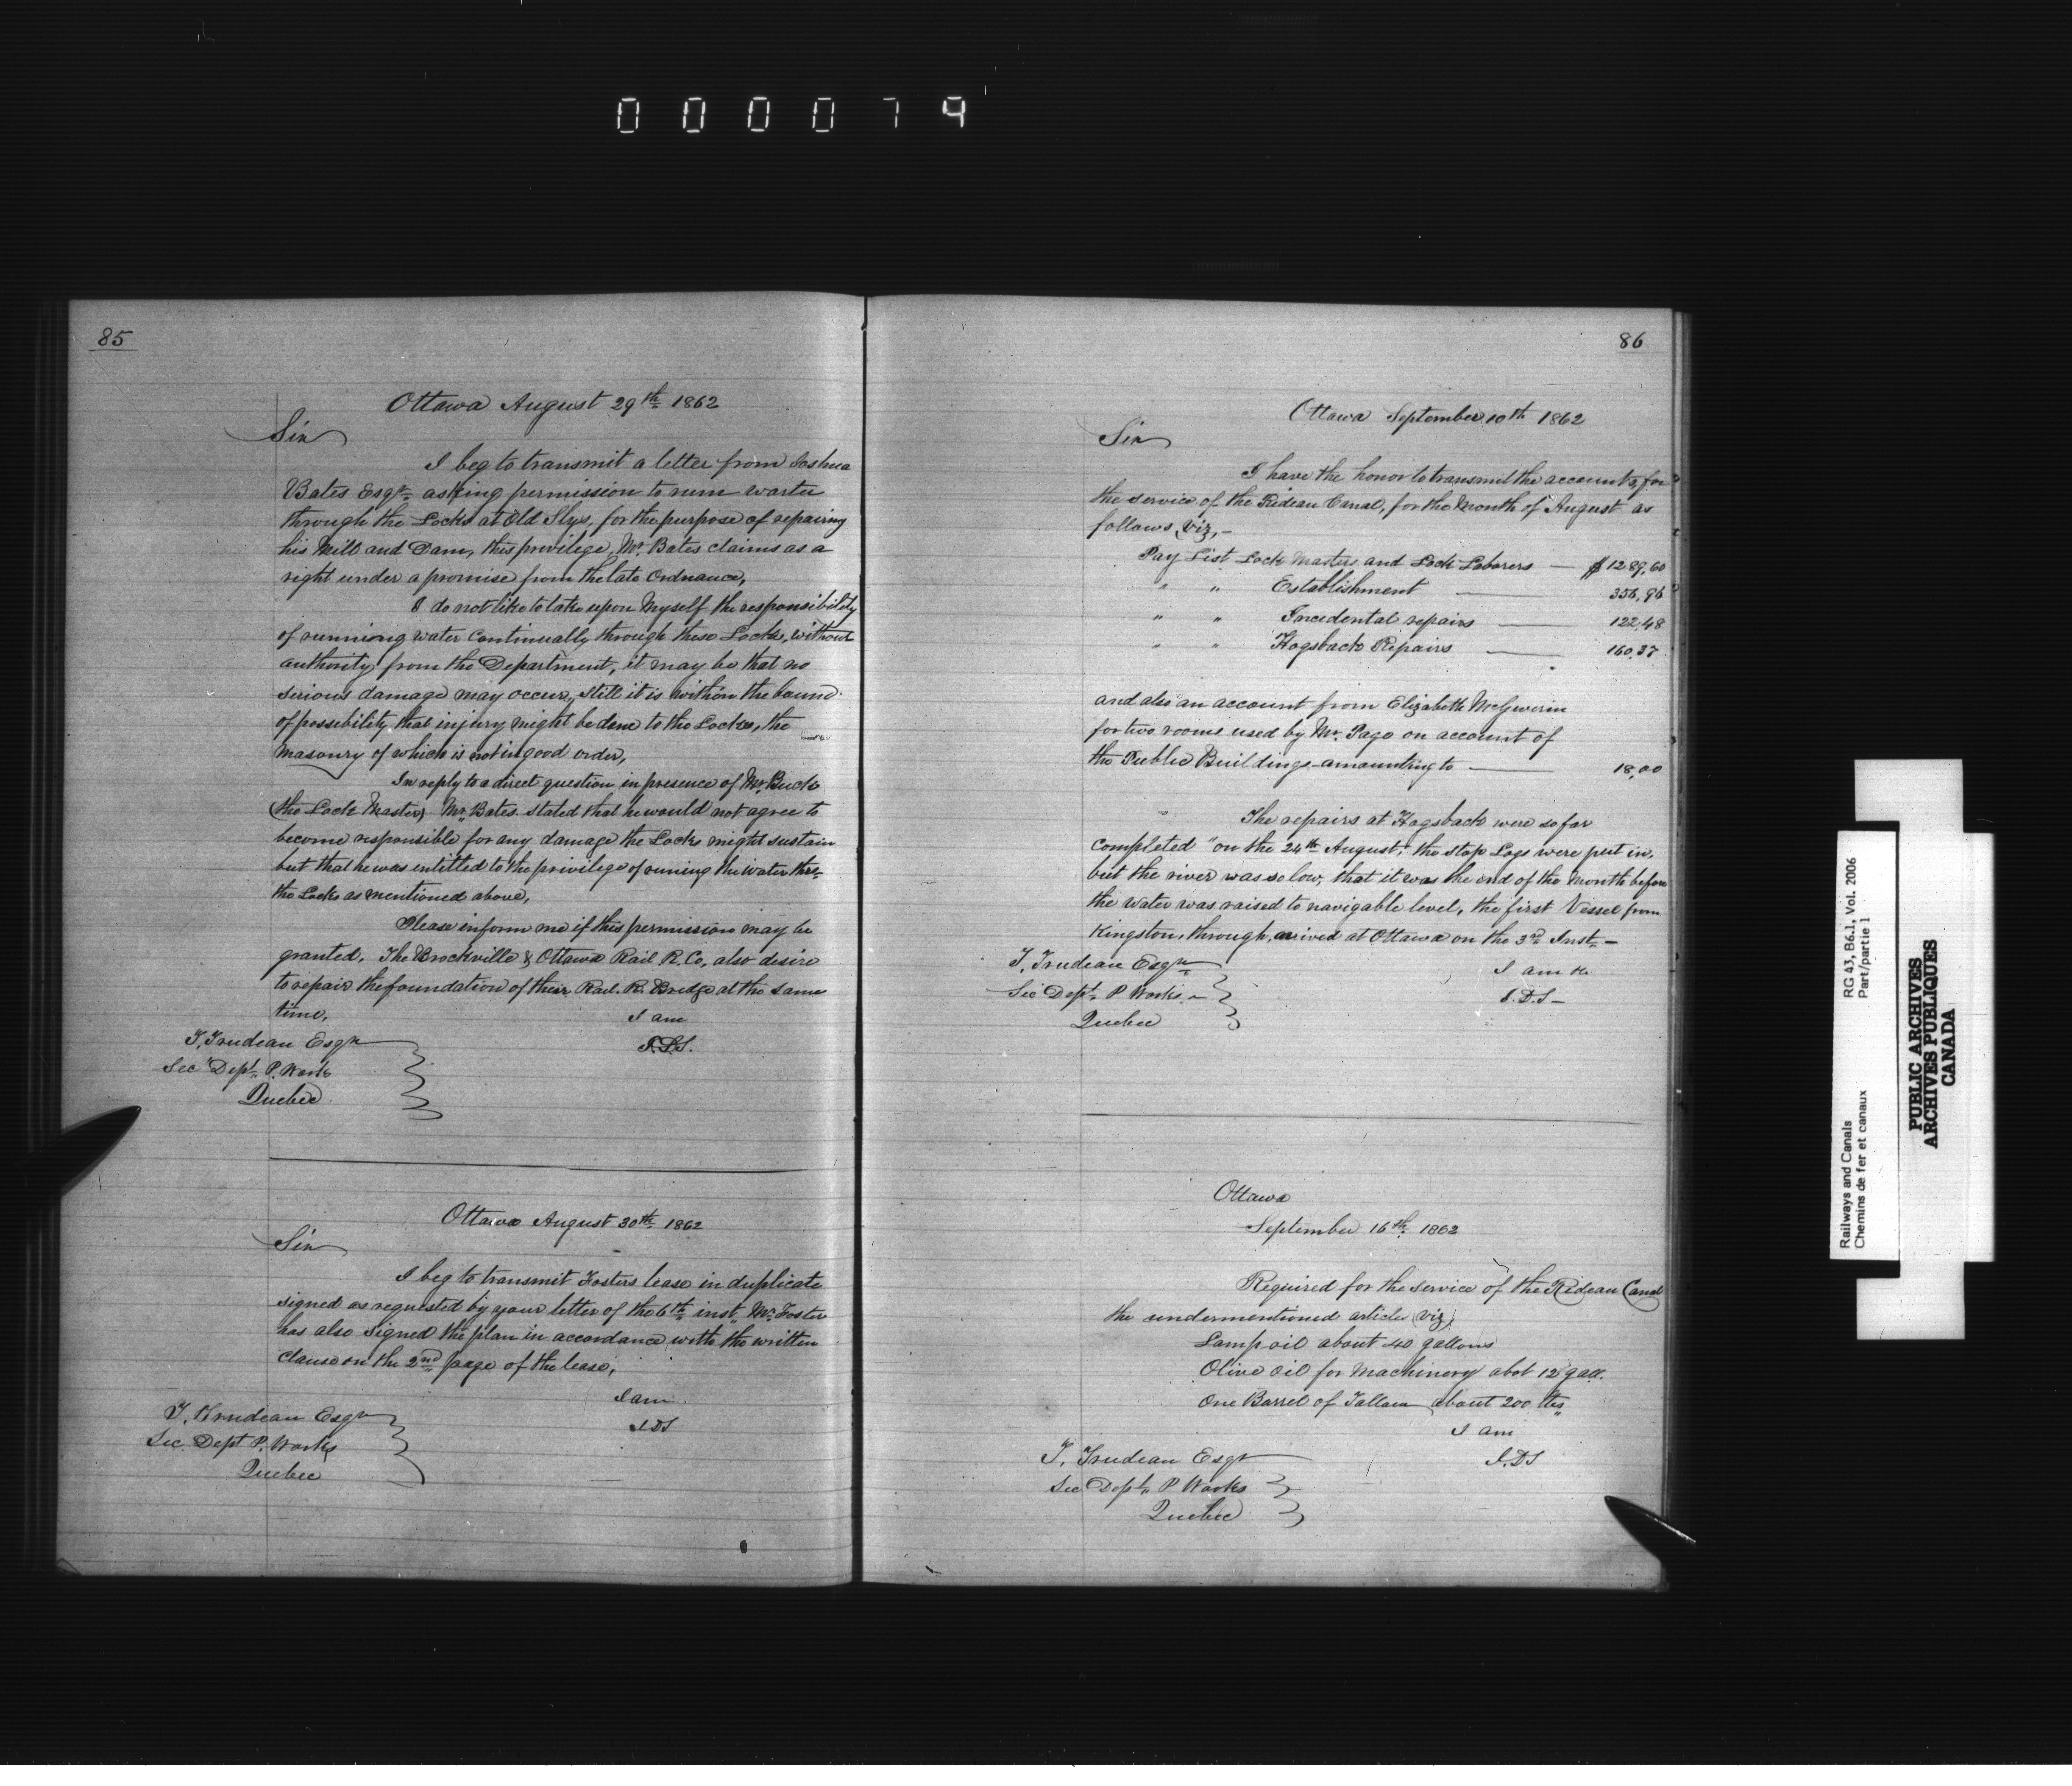 000079
85
Ottawa August 29th 1862
Sir
I beg to transmit a letter from Joshua
Bates Esqr. asking permission to run warter
through the Locks at Old Slys, for the purpose of repairing
his Mill and Dam, this privilege, Mr. Bates claims as a
right under a promise from the late Ordnance,
I do not like to take upon Myself the responsibility
of running water Continually through these Locks, without
authority from the Department, it may be that no
serious damage may occur, still it is within the bound
of possibility that injury might be done to the Locks, the
Masonry of which is not in good order,
In reply to a direct question in presence of Mr. Buck
(the Lock Master) Mr. Bates stated that he would not agree to
become responsible for any damage the Locks might sustain
but that he was entitled to the privilege of runing the water thro-
the Locks as mentioned above,
Please inform me if this permission may be
granted, The Brockville & Ottawa Rail R. Co, also desire
to repair the foundation of their Rail. R. Bridge at the same
time,
I am
T. Trudeau Esqr
Sec Dept. P. Work
Quebec
Ottawa August 30th. 1862
Sir
I beg to transmit Fosters lease in duplicate
signed as requested by your letter of the 6th. inst, Mr. Foster
has also signed the plan in accordance with the written
Clause on the 2nd page of the lease,
I am
J D S
T. Trudeau Esqr
Sec. Dept P. Works
Quebec
86
Ottawa September 10th 1862
Sir
I have the honor to transmit the accounts, for
the service of the Rideau Canal, for the Month of August as
follows, Viz, -
Pay List Lock Masters and Lock Laborers — $1289,60
" " Establishment — 356,96
" " Incidental repairs — 122,48
" " Hogsback Repairs — 160,37
and also an account from Elizabeth
for two rooms used by Mr. Page on account of
the Public Buildings - amounting to — 18,00
The repairs at Hogsback were so far
completed "on the 24th August," the stop Logs were put in,
but the river was so low, that it was the end of the Month before
the water was raised to navigable level, the first Vessel from
Kingston, through, arrived at Ottawa on the 3rd. Inst, -
T. Trudeau Esqr
Sec Dept. P Works
Quebec
I am
J. D. S -
Ottawa
September 16th. 1862
Required for the service of the Rideau Canal
the undermentioned articles (Viz)
Lamp oil about 40 gallons
Olive oil for Machinery abot 12 gall.
One Barrel of Tallow about 200 lbs
I am
J. D S
T. Trudeau Esqr
Sec Dept. P Works
Quebec
Railways and Canals
Chemins de fer et canaux
RG 43, B6.1, Vol. 2006
Part/partie 1
PUBLIC ARCHIVES
ARCHIVES PUBLIQUES
CANADA